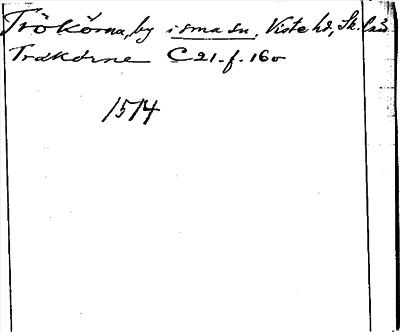 Trökörna, by i sma sn, Viste hd, Sk. län
Trakörne C 21. f. 16v
1514